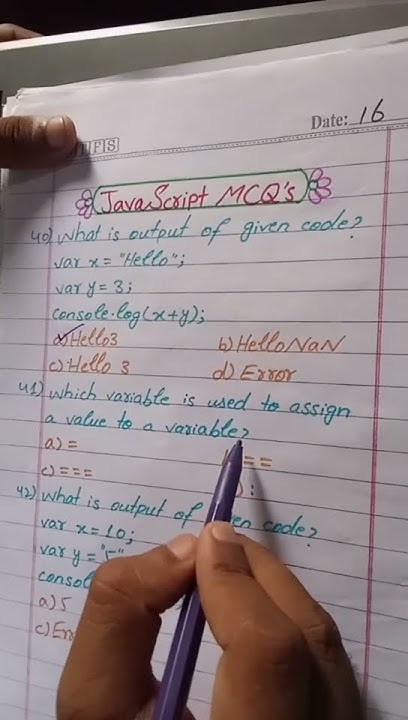 Date: 16
JavaScript MCQ's
40) What is output of given code?
var x = "Hello";
var y = 3;
console.log(x+y);
a) Hello3 b) HelloNaN
c) Hello 3 d) Error
41) Which variable is used to assign
a value to a variable?
a) = ==
c) === :
42) What is output of code?
var x = 10;
var y =
a) 5